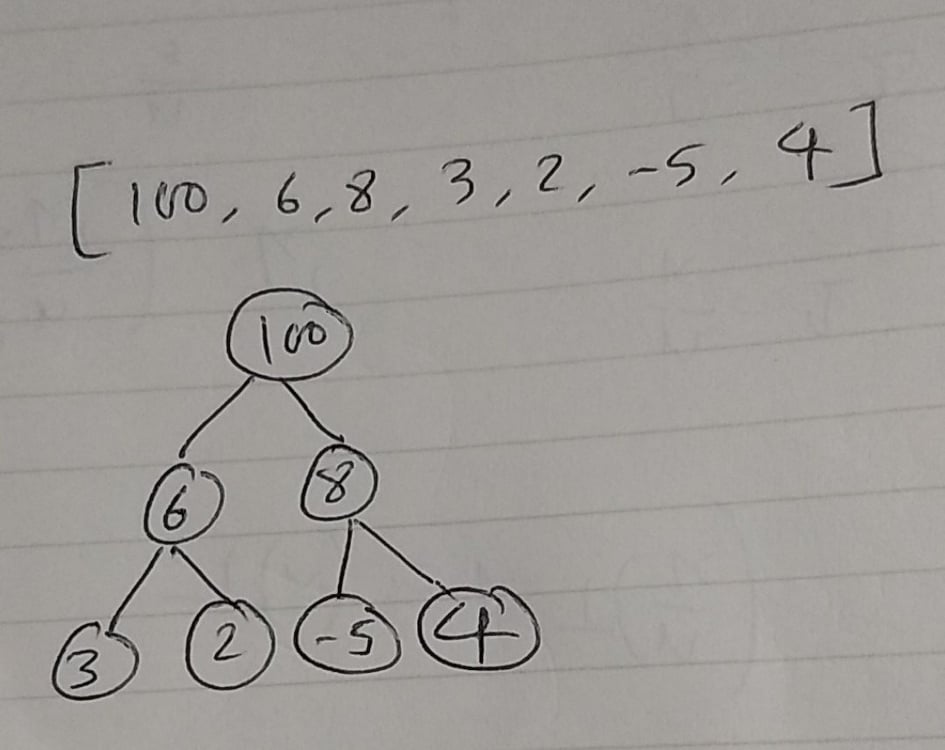 [100, 6, 8, 3, 2, -5, 4]
100
6 8
3 2 -5 4